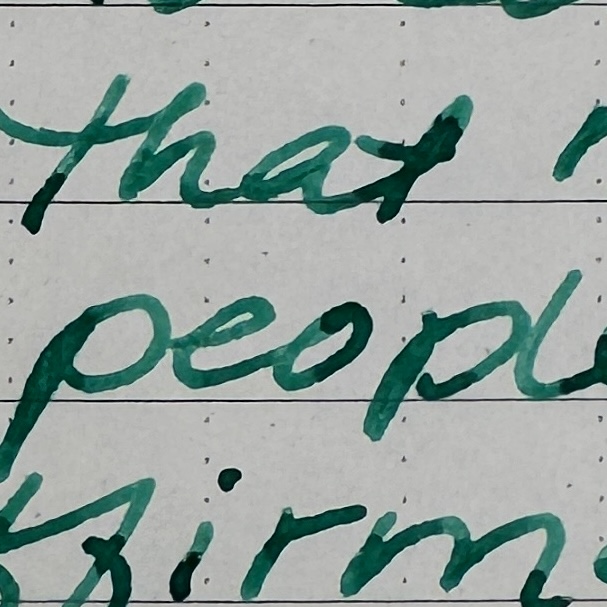 that
people
firms